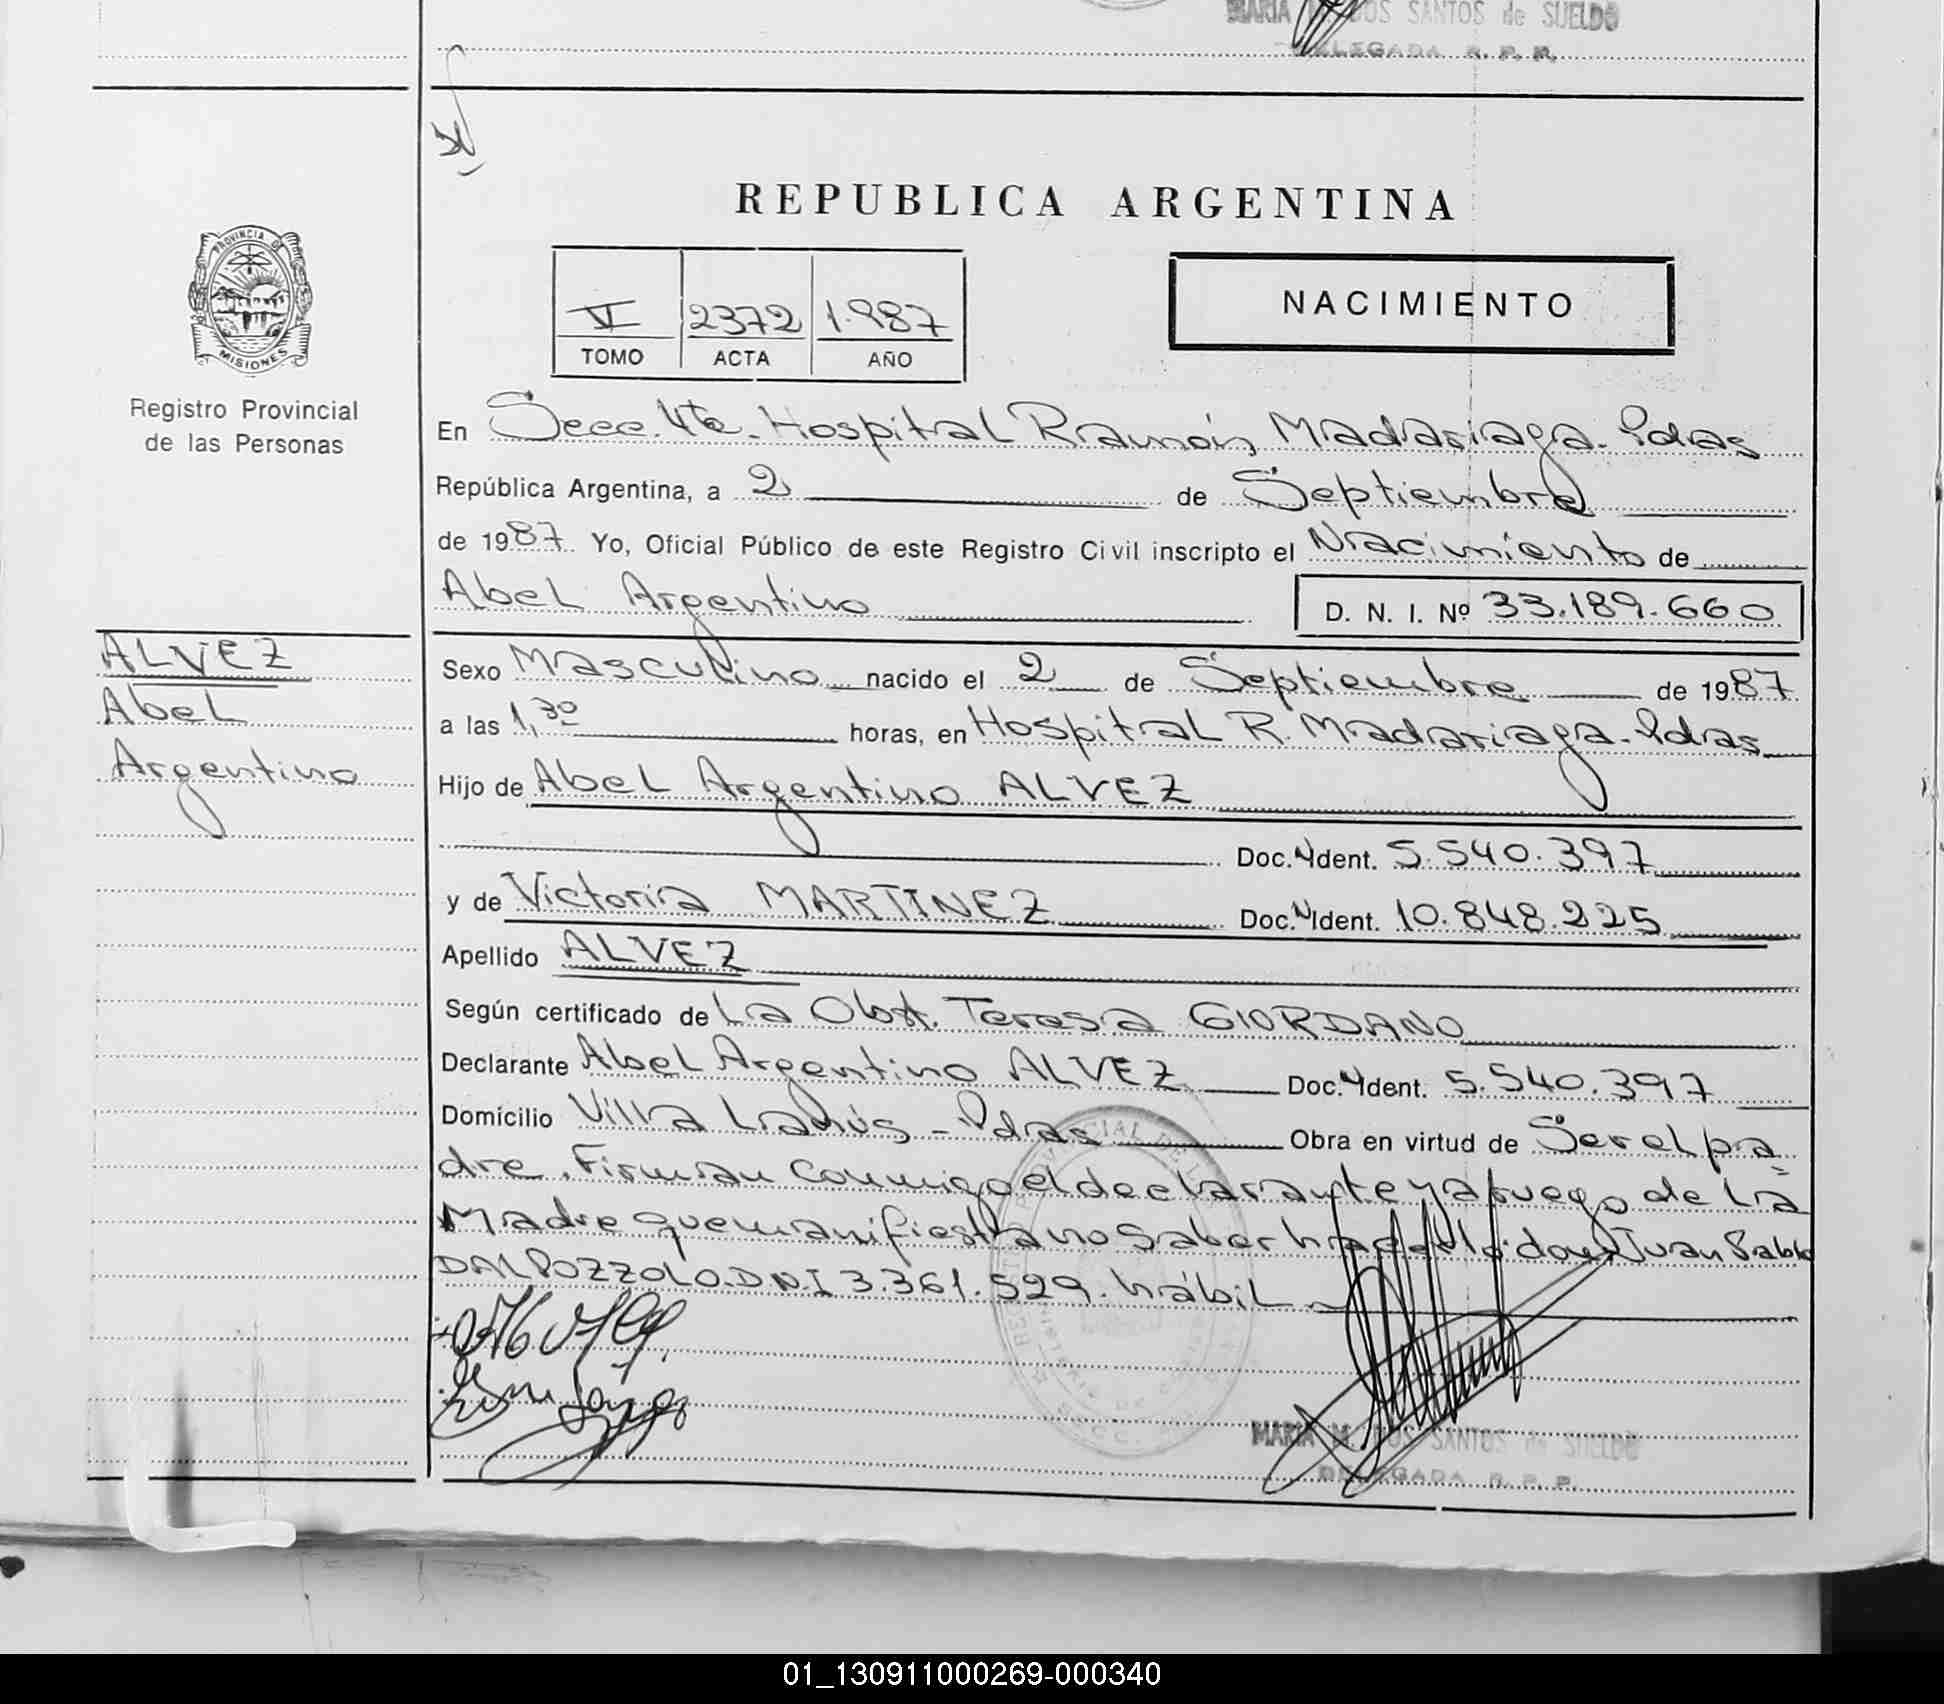 MARIA M. DOS SANTOS de SUELDO
DELEGADA R. P. P.
REPUBLICA ARGENTINA
PROVINCIA DE
MISIONES
Registro Provincial
de las Personas
VI 2372 1.987
TOMO ACTA AÑO
NACIMIENTO
En Secc. 4ta. Hospital Ramón Madariaga. Pdas
República Argentina, a 2 de Septiembre
de 1987. Yo, Oficial Público de este Registro Civil inscripto el Nacimiento de
Abel Argentino
D. N. I. Nº 33.189.660
ALVEZ
Abel
Argentino
Sexo Masculino nacido el 2 de Septiembre de 1987
a las 1,30 horas, en Hospital R. Madariaga. Pdas
Hijo de Abel Argentino ALVEZ
Doc. Ident. 5.540.397
y de Victoria MARTINEZ Doc. Ident. 10.848.225
Apellido ALVEZ
Según certificado de La Obst. Teresa GIORDANO
Declarante Abel Argentino ALVEZ Doc. Ident. 5.540.397
Domicilio Villa Lanús - Pdas Obra en virtud de Ser el pa
dre. Firman conmigo el declarante y a ruego de la
Madre que manifiesta no saber hacerlo don Juan Pablo
DALPOZZOLO. D.N.I 3.361.529. hábil
MARIA M. DOS SANTOS de SUELDO
DELEGADA R. P. P.
01_130911000269-000340